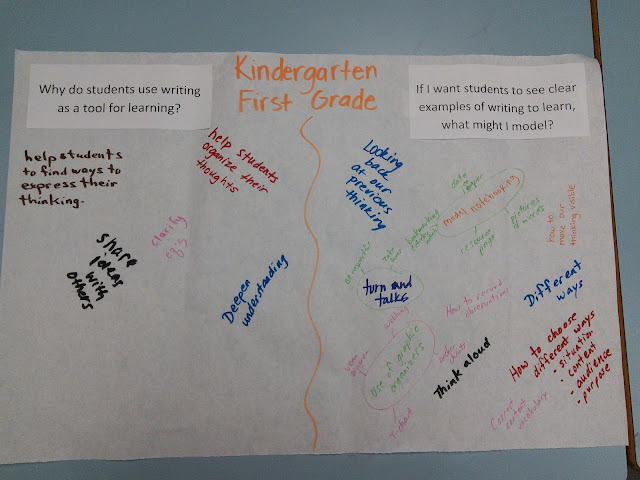 Kindergarten
First Grade
Why do students use writing
as a tool for learning?
help students
to find ways to
express their
thinking.
help students
organize their
thoughts
clarify
share
ideas
with
others
Deepen
understanding
If I want students to see clear
examples of writing to learn,
what might I model?
Looking
back
at our
previous
thinking
model notebooking
pictures
words
research
page
how to
make our
thinking visible
turn and
talks
How to record
observations
Different
ways
Use of graphic
organizers
T-chart
Think aloud
How to choose
different ways
- situation
- content
- audience
- purpose
Correct
content
vocabulary